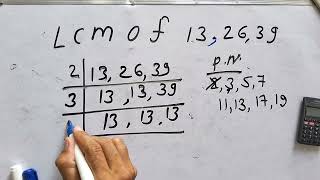 Lcm of 13, 26, 39
2 | 13, 26, 39
3 | 13, 13, 39
13, 13, 13
p.N.
2, 3, 5, 7
11, 13, 17, 19